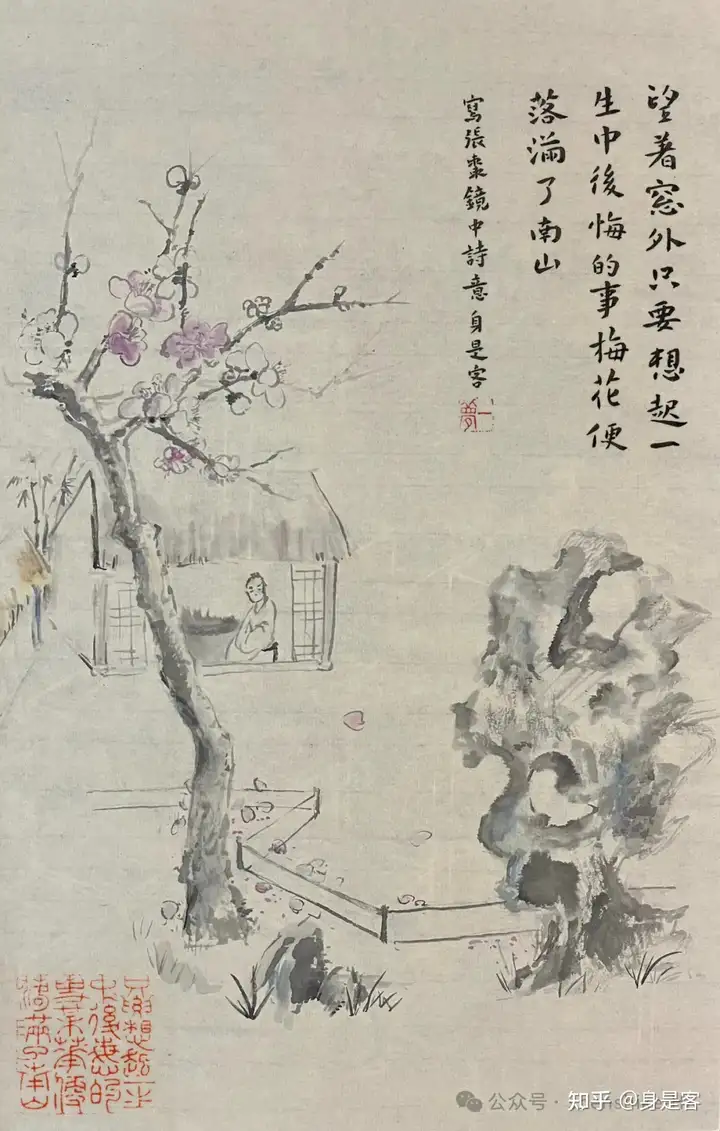 望著窓外只要想起一
生中後悔的事梅花便
落滿了南山
寫張棗鏡中詩意身是客
一夢
只要想起一生
中後悔的
落滿了南山
公众号
知乎 @身是客